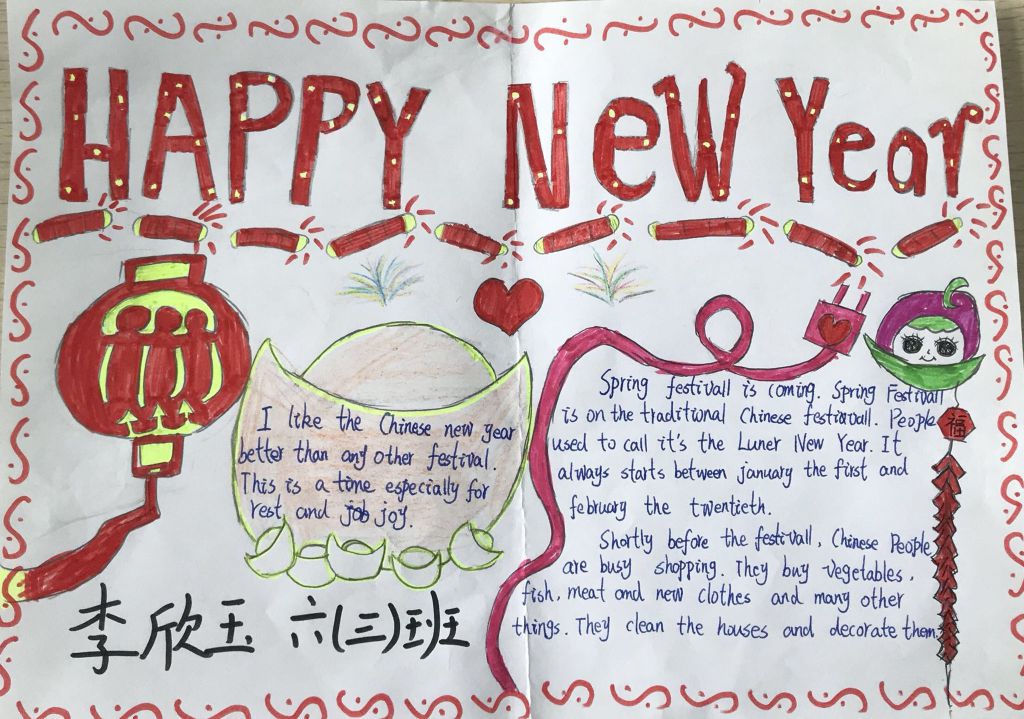 HAPPY NeW Year
I like the Chinese new year
better than any other festival.
This is a time especially for
rest and job joy.
Spring festivall is coming. Spring Festivall
is on the traditional Chinese festivall. People
used to call it's the Luner New Year. It
always starts between january the first and
february the twentieth.
Shortly before the festivall, Chinese People
are busy shopping. They buy vegetables,
fish, meat and new clothes and many other
things. They clean the houses and decorate them.
福
李欣玉 六(三)班